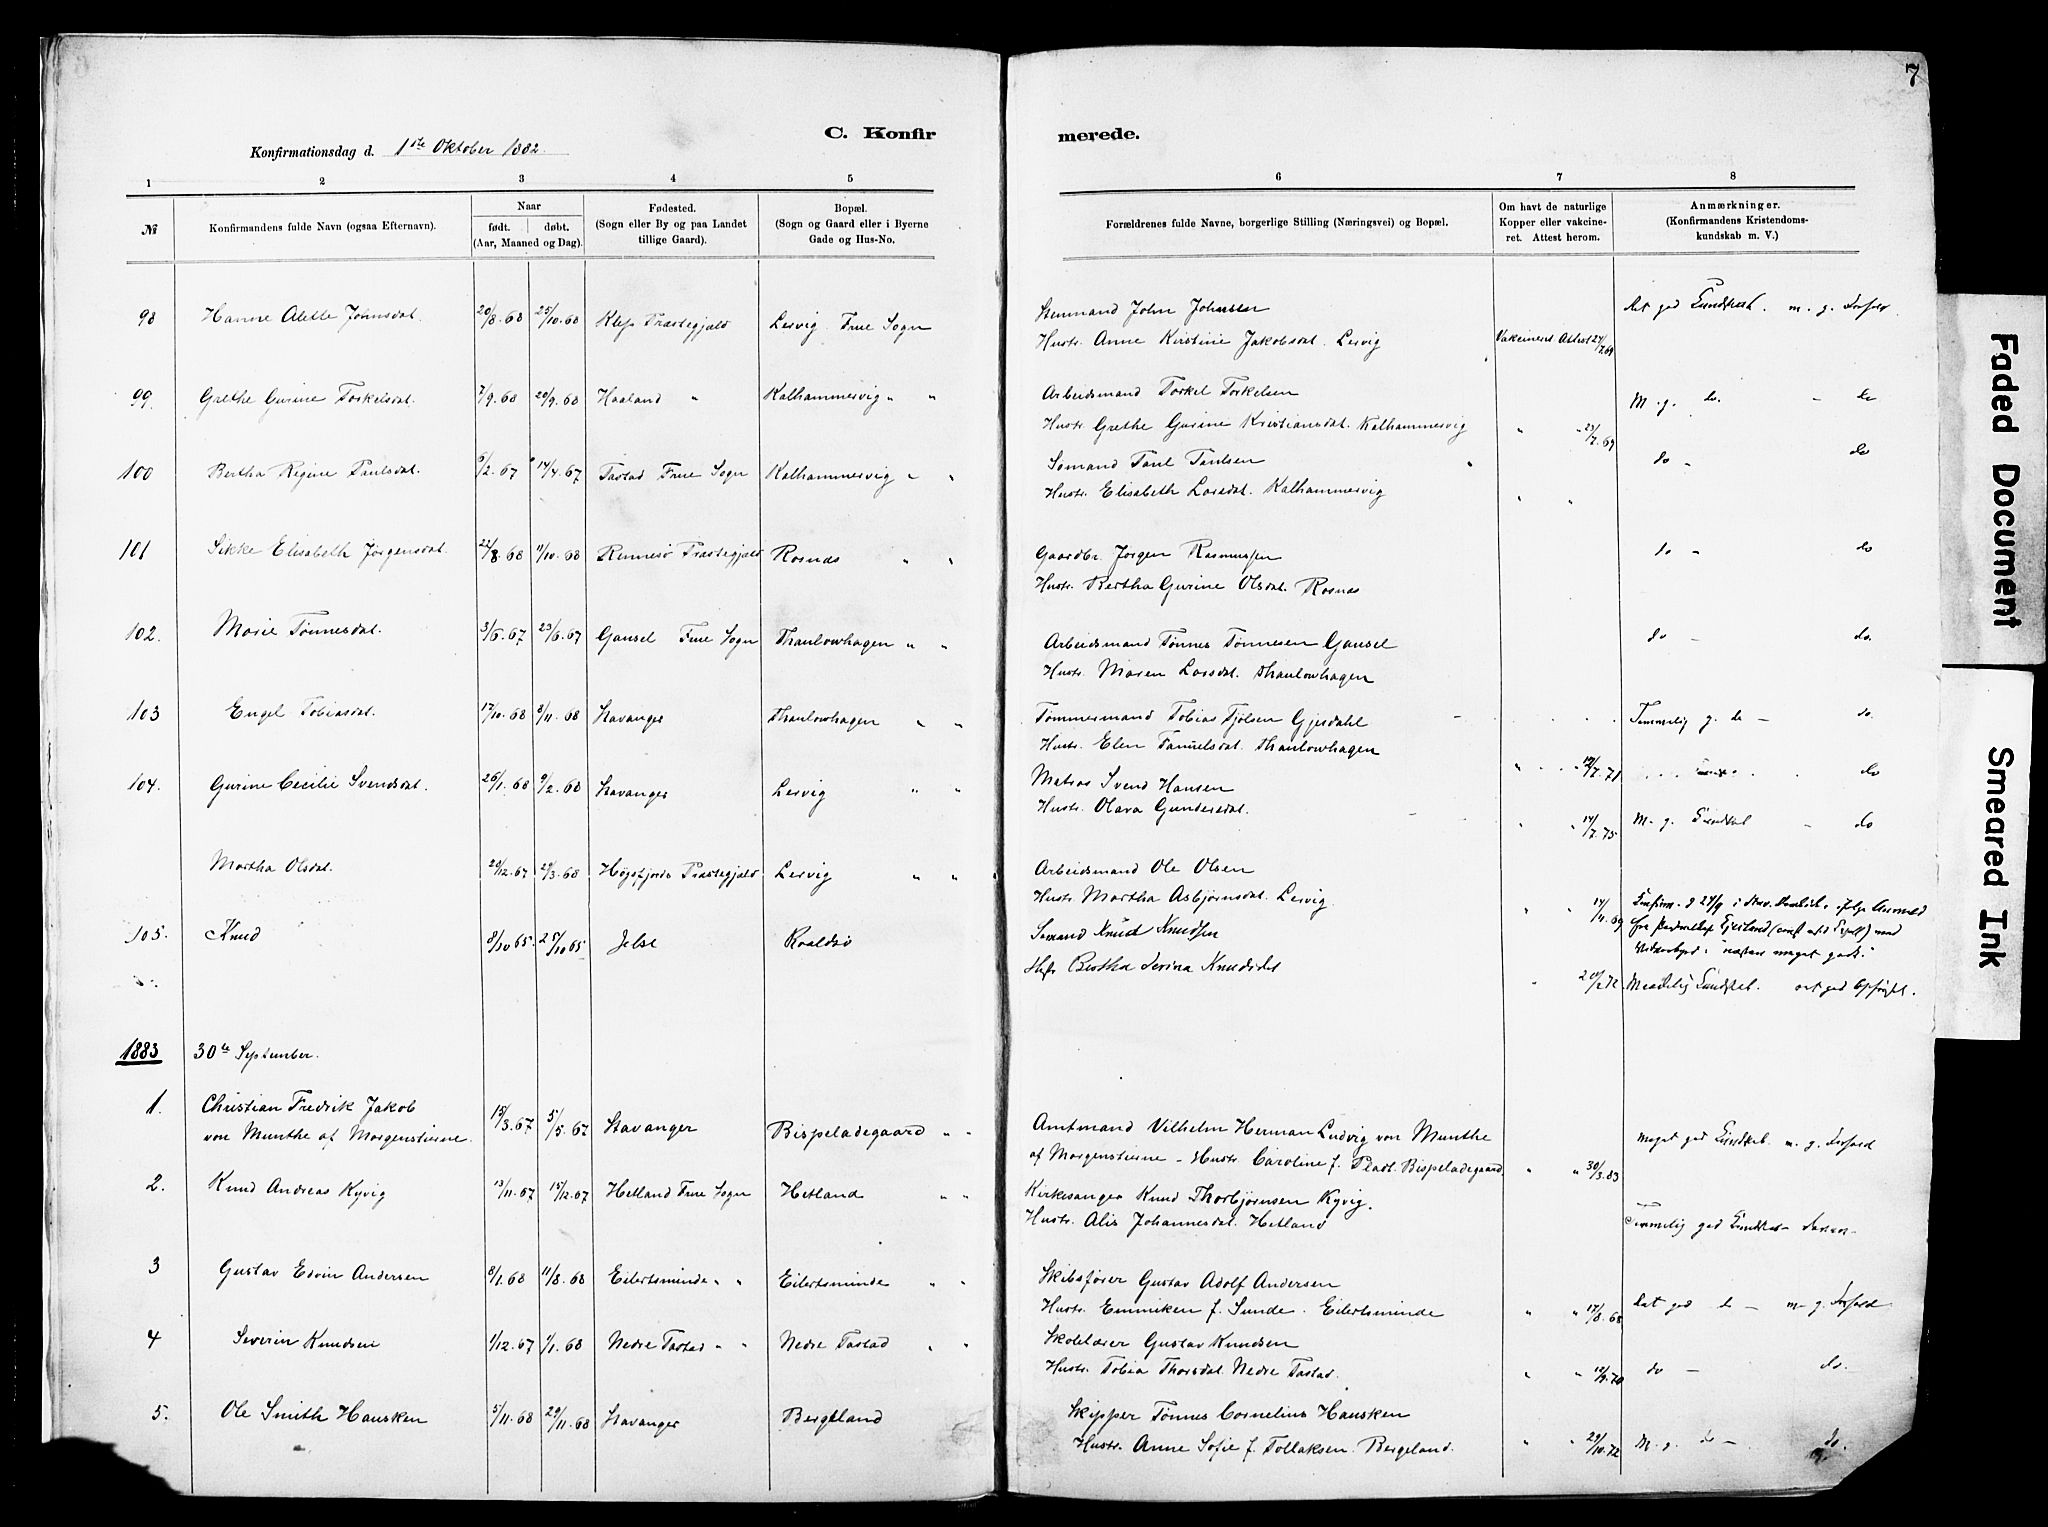 7
C. Konfir
merede.
Konfirmationsdag d. 1ste Oktober 1882.
1 2 3 4 5 6 7 8
№
Konfirmandens fulde Navn (ogsaa Efternavn).
Naar
født. døbt.
(Aar, Maaned og Dag).
Fødested.
(Sogn eller By og paa Landet
tillige Gaard).
Bopæl.
(Sogn og Gaard eller i Byerne
Gade og Hus-No.
Forældrenes fulde Navne, borgerlige Stilling (Næringsvei) og Bopæl.
Om havt de naturlige
Kopper eller vakcine-
ret. Attest herom.
Anmærkninger.
(Konfirmandens Kristendoms-
kundskab m. V.)
98 Hanne Alette Johnsdat. 20/8.68 25/10.68 Klep Præstegjæld Lervig Frue Sogn
John Johnsen
Hustr. Anne Kirstine Jakobsdat. Lervig Vakcineret Attest 27/7.69
99. Grethe Gurine Torkelsdat. 7/9.68 20/9.68 Haaland " Kalhammervig " "
Arbeidsmand Torkel Torkelsen M. g. do. - do
Hustr. Grethe Gurine Kristiansdat. Kalhammervig " " 23/7.69
100 Bertha Regine Paulsdat. 6/2.67 14/4.67 Tastad Frue Sogn Kalhammervig " "
Sømand Paul Paulsen do - do
Hustr. Elisabeth Larsdat. Kalhammervig " "
101 Sikke Elisabeth Jørgensdat. 22/8.68 11/10.68 Rennesø Præstegjæld Rosnæs " "
Gaardbr. Jørgen Rasmussen do - do
Hustr. Bertha Gurine Olsdat. Rosnæs
102. Marie Tønnesdat. 3/6.67 23/6.67 Gausel Frue Sogn Thaulowhagen " "
Arbeidsmand Tønnes Tønnesen Gausel do - do.
Hustr. Maren Larsdat. Thaulowhagen
103 Engel Tobiasdat. 17/10.68 8/11.68 Stavanger Thaulowhagen " "
Tømmermand Tobias Tjølsen Gjesdahl Temmelig g. do - do.
Hustr. Elen Samuelsdat. Thaulowhagen
104. Gurine Cecilie Svendsdat. 26/1.68 9/2.68 Stavanger Lervig " "
Matros Svend Hansen do
Hustr. Olava Gundersdat. M. g. Kundskab - do
Martha Olsdat. 20/12.67 29/3.68 Høgsfjords Præstegjæld Lervig " "
Arbeidsmand Ole Olsen
Hustr. Martha Asbjørnsdat. Lervig " " 14/4.69
105. Knud 8/10 65. 25/10 65 Jelse Roaldsø
Sømand Knud Knudsen
Hustr Bertha Serina Knudsdat
1883 30te September.
1. Christian Fredrik Jakob
von Munthe af Morgenstierne. 15/3.67 5/5.67 Stavanger Bispeladegaard " "
Amtmand Vilhelm Herman Ludvig von Munthe meget god Kundskab. m. g. Forhold
af Morgenstierne - Hustr. Caroline f. Bispeladegaard " " 30/3.83
2. Knud Andreas Kyvig 13/11.67 15/12.67 Hetland Frue Sogn Hetland " "
Kirkesanger Knud Thorbjørnsen Kyvig.
Hustr. Alis Johannesdat. Hetland Temmelig god Kundskab -
3 Gustav Edvin Andersen 8/1.68 11/8.68 Eilertsminde " " Eilertsminde " "
Skibsfører Gustav Adolf Andersen
Hustr. Enniken f. Sunde. Eilertsminde " " 17/8.68 god do - m. g. Forhold
4 Severin Knudsen 1/12.67 1/1.68 Nedre Tastad " " Nedre Tastad " "
Skolelærer Gustav Knudsen
Hustr. Tobia Thorsdat. Nedre Tastad. " " do - do.
5. Ole Smith Hausken 5/11.68 29/11.68 Stavanger Bergeland
Skipper Tønnes Cornelius Hausken
Hustr. Anne Sofie f. Tollaksen. Bergeland. " " 29/10.72 M. g. do - do.
Faded Document
Smeared Ink